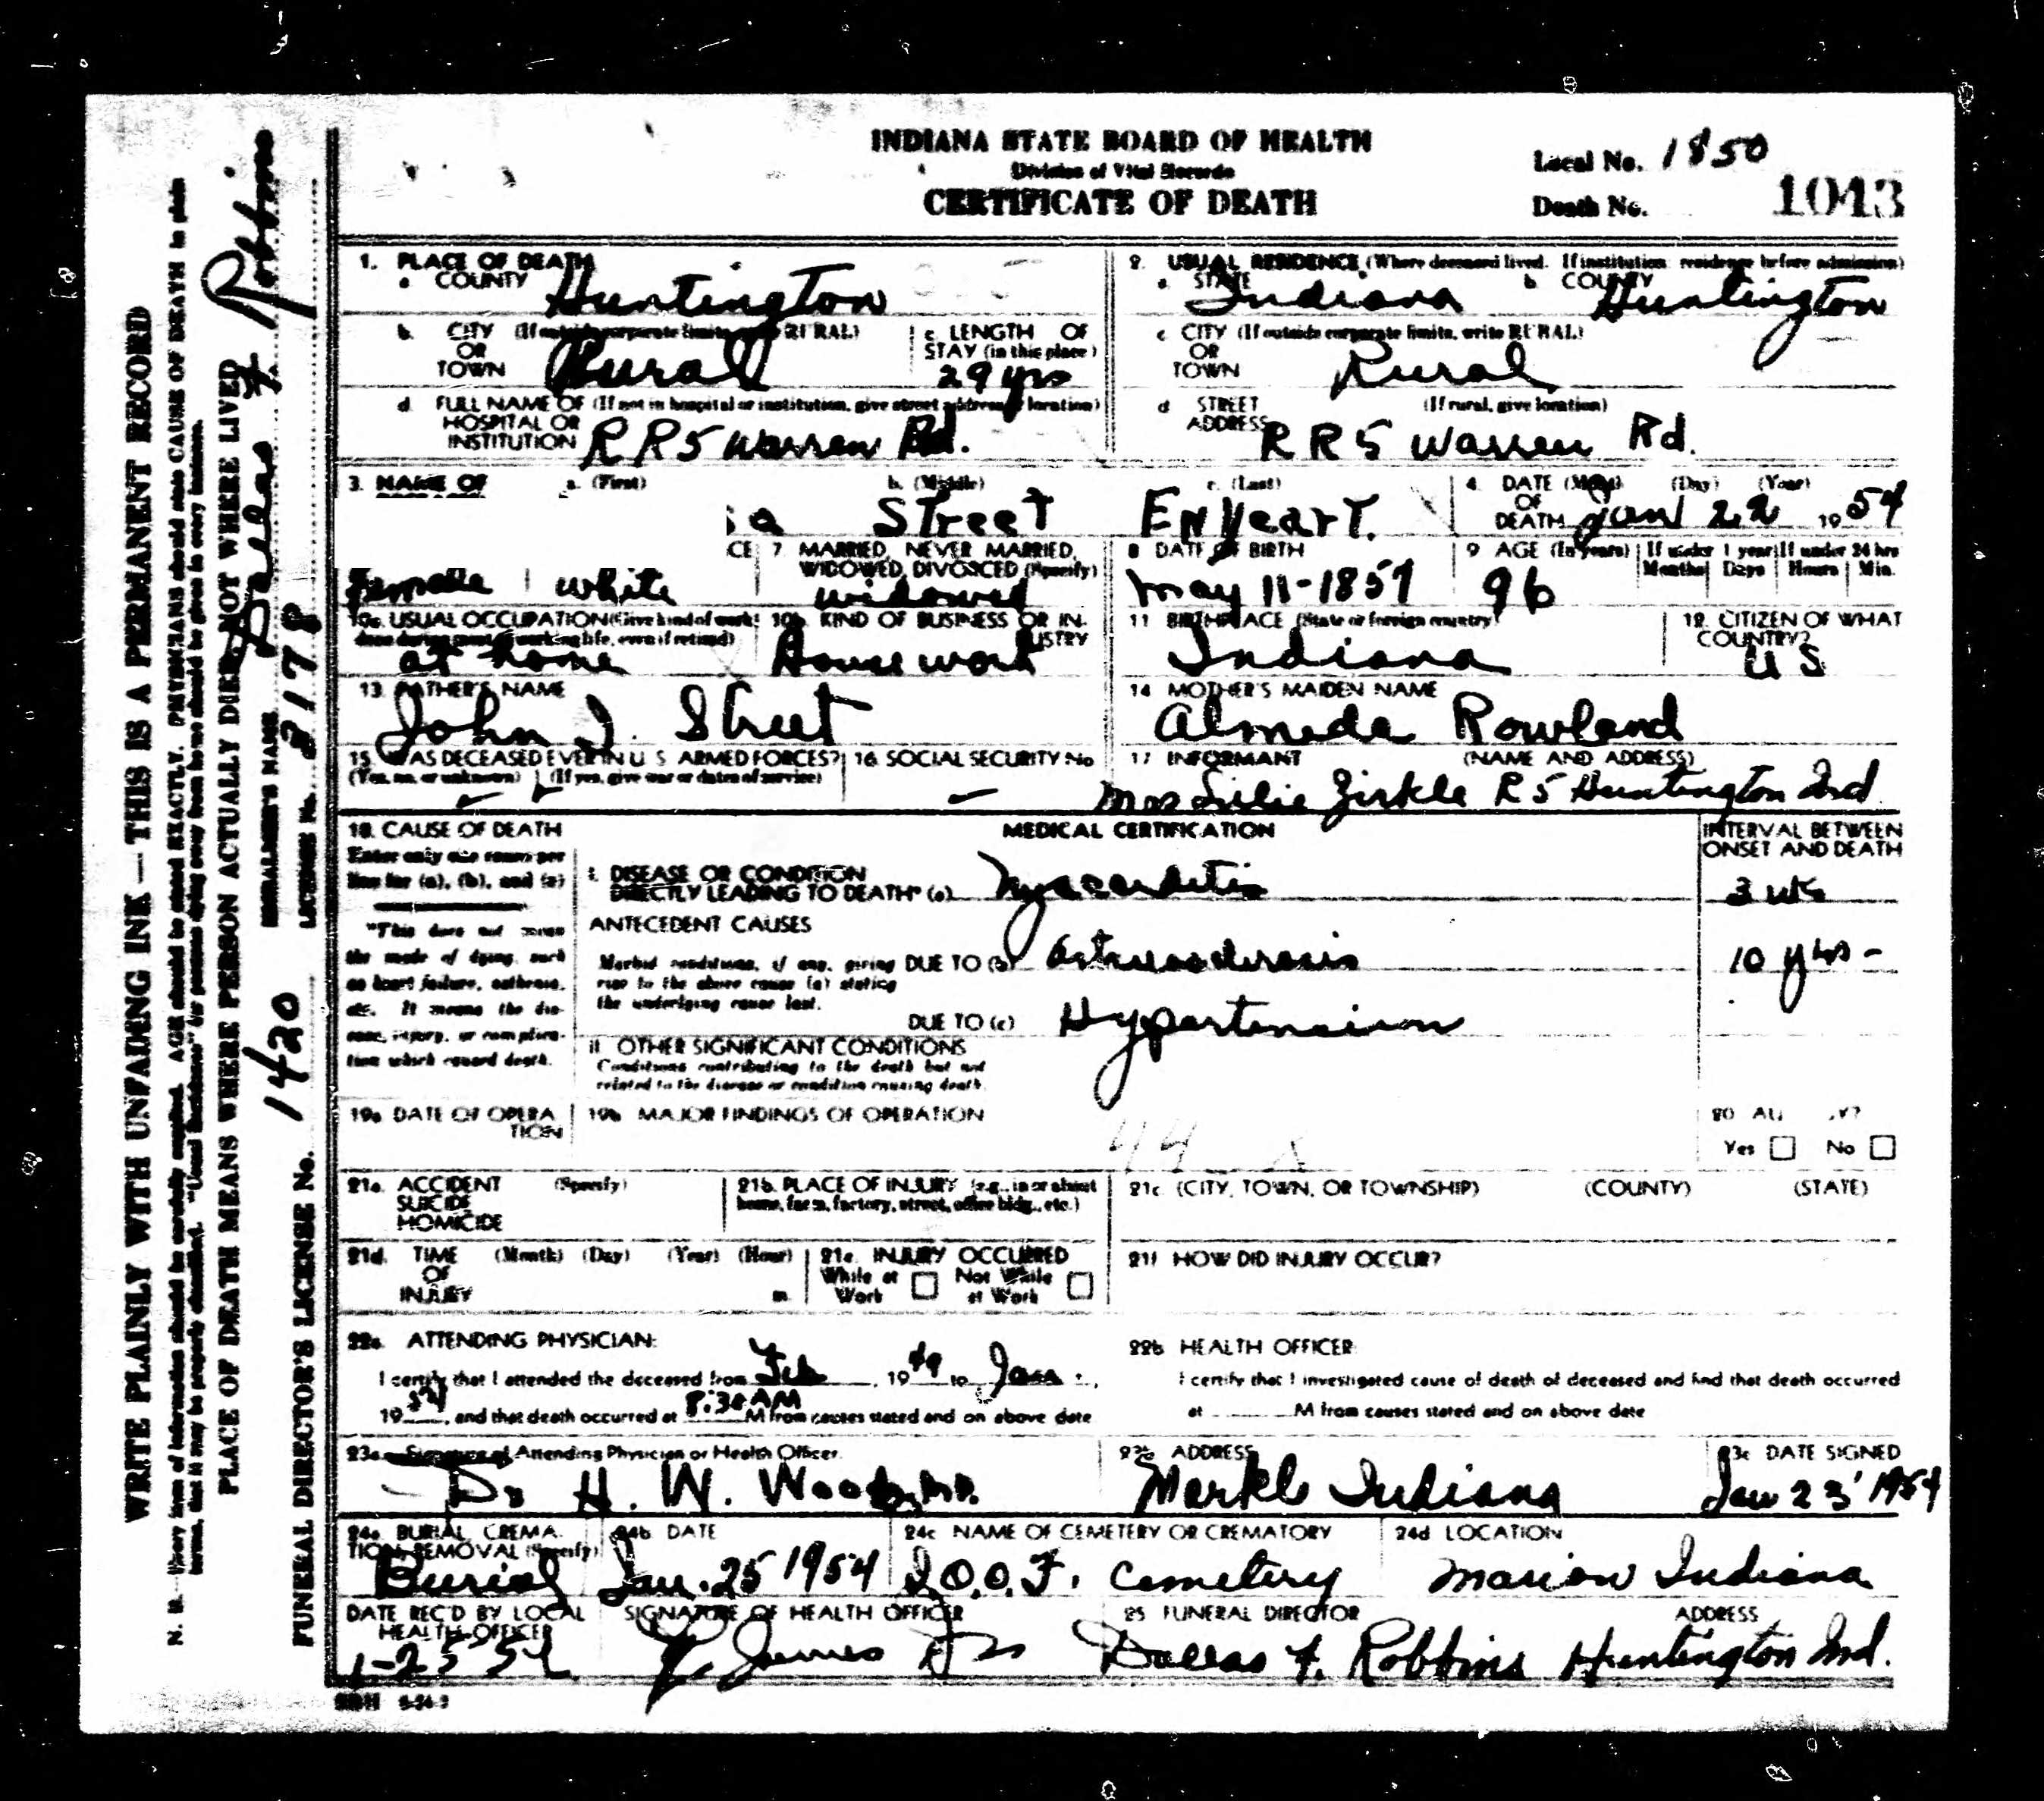 INDIANA STATE BOARD OF HEALTH
Division of Vital Records
CERTIFICATE OF DEATH
Local No. 1850
Death No. 1043
WRITE PLAINLY WITH UNFADING INK—THIS IS A PERMANENT RECORD
N. B.—Every item of information should be carefully supplied. AGE should be stated EXACTLY. PHYSICIANS should state CAUSE OF DEATH in plain
terms, that it may be properly classified. "Usual Residence" for persons dying away from home should be given in every instance.
PLACE OF DEATH MEANS WHERE PERSON ACTUALLY DIED, NOT WHERE LIVED
EMBALMER'S NAME Dallas F. Robbins
FUNERAL DIRECTOR'S LICENSE No. 1420 LICENSE No. 3178
1. PLACE OF DEATH
a COUNTY Huntington
2. USUAL RESIDENCE (Where deceased lived. If institution: residence before admission)
a. STATE Indiana b COUNTY Huntington
b. CITY (If outside corporate limits, write RURAL)
OR
TOWN Rural
c. LENGTH OF
STAY (in this place)
29 yrs
c CITY (If outside corporate limits, write RURAL)
OR
TOWN Rural
d. FULL NAME OF (If not in hospital or institution, give street address or location)
HOSPITAL OR
INSTITUTION RR5 Warren Rd.
d STREET (If rural, give location)
ADDRESS RR5 Warren Rd.
3. NAME OF a. (First) b. (Middle) c. (Last)
a Street Enyeart.
4. DATE (Month) (Day) (Year)
OF
DEATH Jan 22 1954
CE
Female white
7 MARRIED, NEVER MARRIED,
WIDOWED, DIVORCED (Specify)
widowed
8 DATE OF BIRTH
May 11-1857
9 AGE (In years) If under 1 year If under 24 hrs
Months Days Hours Min.
96
10a. USUAL OCCUPATION (Give kind of work
done during most of working life, even if retired)
at home
10b. KIND OF BUSINESS OR IN-
DUSTRY
House work
11 BIRTHPLACE (State or foreign country)
Indiana
12. CITIZEN OF WHAT
COUNTRY?
US
13 FATHER'S NAME
John J. Street
14 MOTHER'S MAIDEN NAME
Almeda Rowland
15 WAS DECEASED EVER IN U. S. ARMED FORCES?
(Yes, no, or unknown) (If yes, give war or dates of service)
16 SOCIAL SECURITY No
17 INFORMANT (NAME AND ADDRESS)
Mrs Lilie Zirkle R5 Huntington Ind.
18. CAUSE OF DEATH
Enter only one cause per
line for (a), (b), and (c)
"This does not mean
the mode of dying, such
as heart failure, asthenia,
etc. It means the dis-
ease, injury, or complica-
tion which caused death.
MEDICAL CERTIFICATION
INTERVAL BETWEEN
ONSET AND DEATH
I. DISEASE OR CONDITION
DIRECTLY LEADING TO DEATH* (a) Myocarditis 3 wks
ANTECEDENT CAUSES
Morbid conditions, if any, giving
rise to the above cause (a) stating
the underlying cause last.
DUE TO (b) Arteriosclerosis 10 yrs-
DUE TO (c) Hypertension
II OTHER SIGNIFICANT CONDITIONS
Conditions contributing to the death but not
related to the disease or condition causing death.
19a DATE OF OPERA
TION
19b MAJOR FINDINGS OF OPERATION
44 X
20 AU Y?
Yes No
21a. ACCIDENT (Specify)
SUICIDE
HOMICIDE
21b. PLACE OF INJURY (e.g., in or about
home, farm, factory, street, office bldg., etc.)
21c. (CITY, TOWN, OR TOWNSHIP) (COUNTY) (STATE)
21d. TIME (Month) (Day) (Year) (Hour)
OF
INJURY m.
21e. INJURY OCCURRED
While at Work Not While at Work
21f HOW DID INJURY OCCUR?
22a. ATTENDING PHYSICIAN:
I certify that I attended the deceased from Feb, 1949 to Jan.,
1954, and that death occurred at 8:30 AM M from causes stated and on above date
22b HEALTH OFFICER
I certify that I investigated cause of death of deceased and find that death occurred
at M from causes stated and on above date
23a. Signature of Attending Physician or Health Officer.
Dr H. W. Woods, MD.
23b ADDRESS
Markle Indiana
23c DATE SIGNED
Jan 23 1954
24a. BURIAL, CREMA-
TION, REMOVAL (Specify)
Burial
24b DATE
Jan. 25 1954
24c NAME OF CEMETERY OR CREMATORY
I.O.O.F. Cemetery
24d LOCATION
Marion Indiana
DATE REC'D BY LOCAL
HEALTH OFFICER
1-25 54
SIGNATURE OF HEALTH OFFICER
25 FUNERAL DIRECTOR ADDRESS
Dallas F. Robbins Huntington Ind.